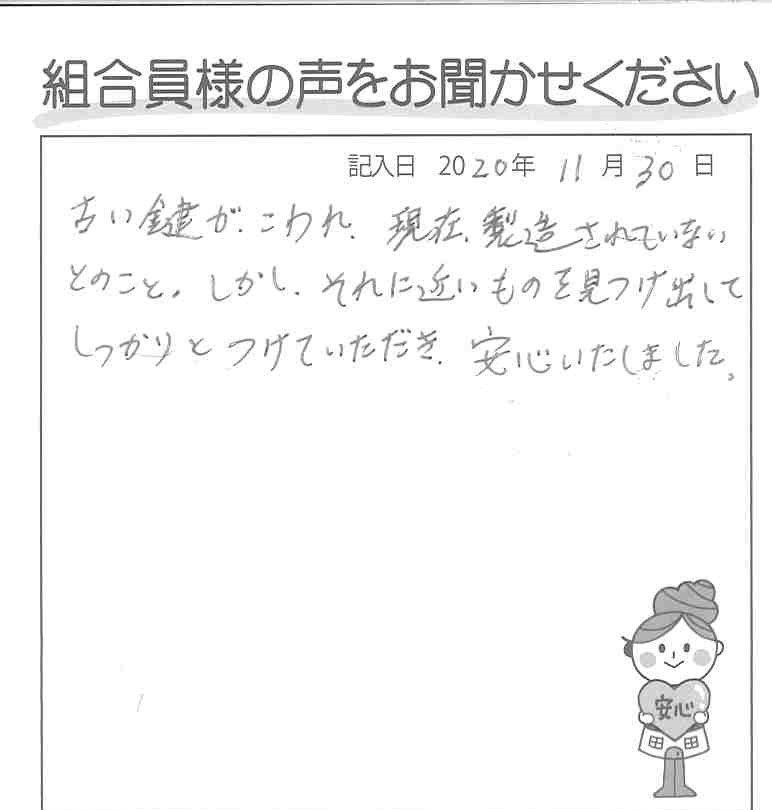 組合員様の声をお聞かせください
記入日 2020年 11月30日
古い鍵が、こわれ、現在、製造されていない
とのこと。しかし、それに近いものを見つけ出して
しっかりとつけていただき、安心いたしました。
安心